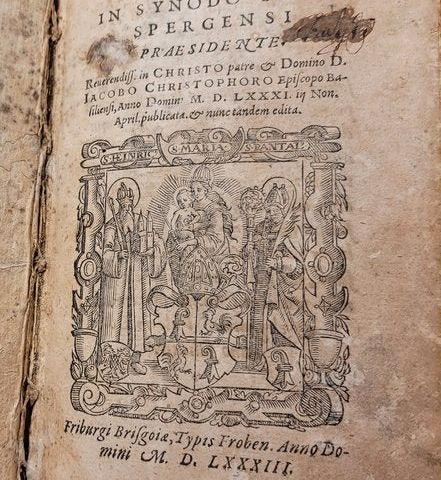 IN SYNODO
SPERGENSI
PRAESIDENTE
Reverendiss. in CHRISTO patre & Domino D.
IACOBO CHRISTOPHORO Episcopo Ba-
siliensi, Anno Domini M. D. LXXXI. iij Non.
April. publicata. & nunc tandem edita.
S. HEINRIC S. MARIA S. PANTAL
Friburgi Brisgoiæ, Typis Froben. Anno Do-
mini M. D. LXXXIII.